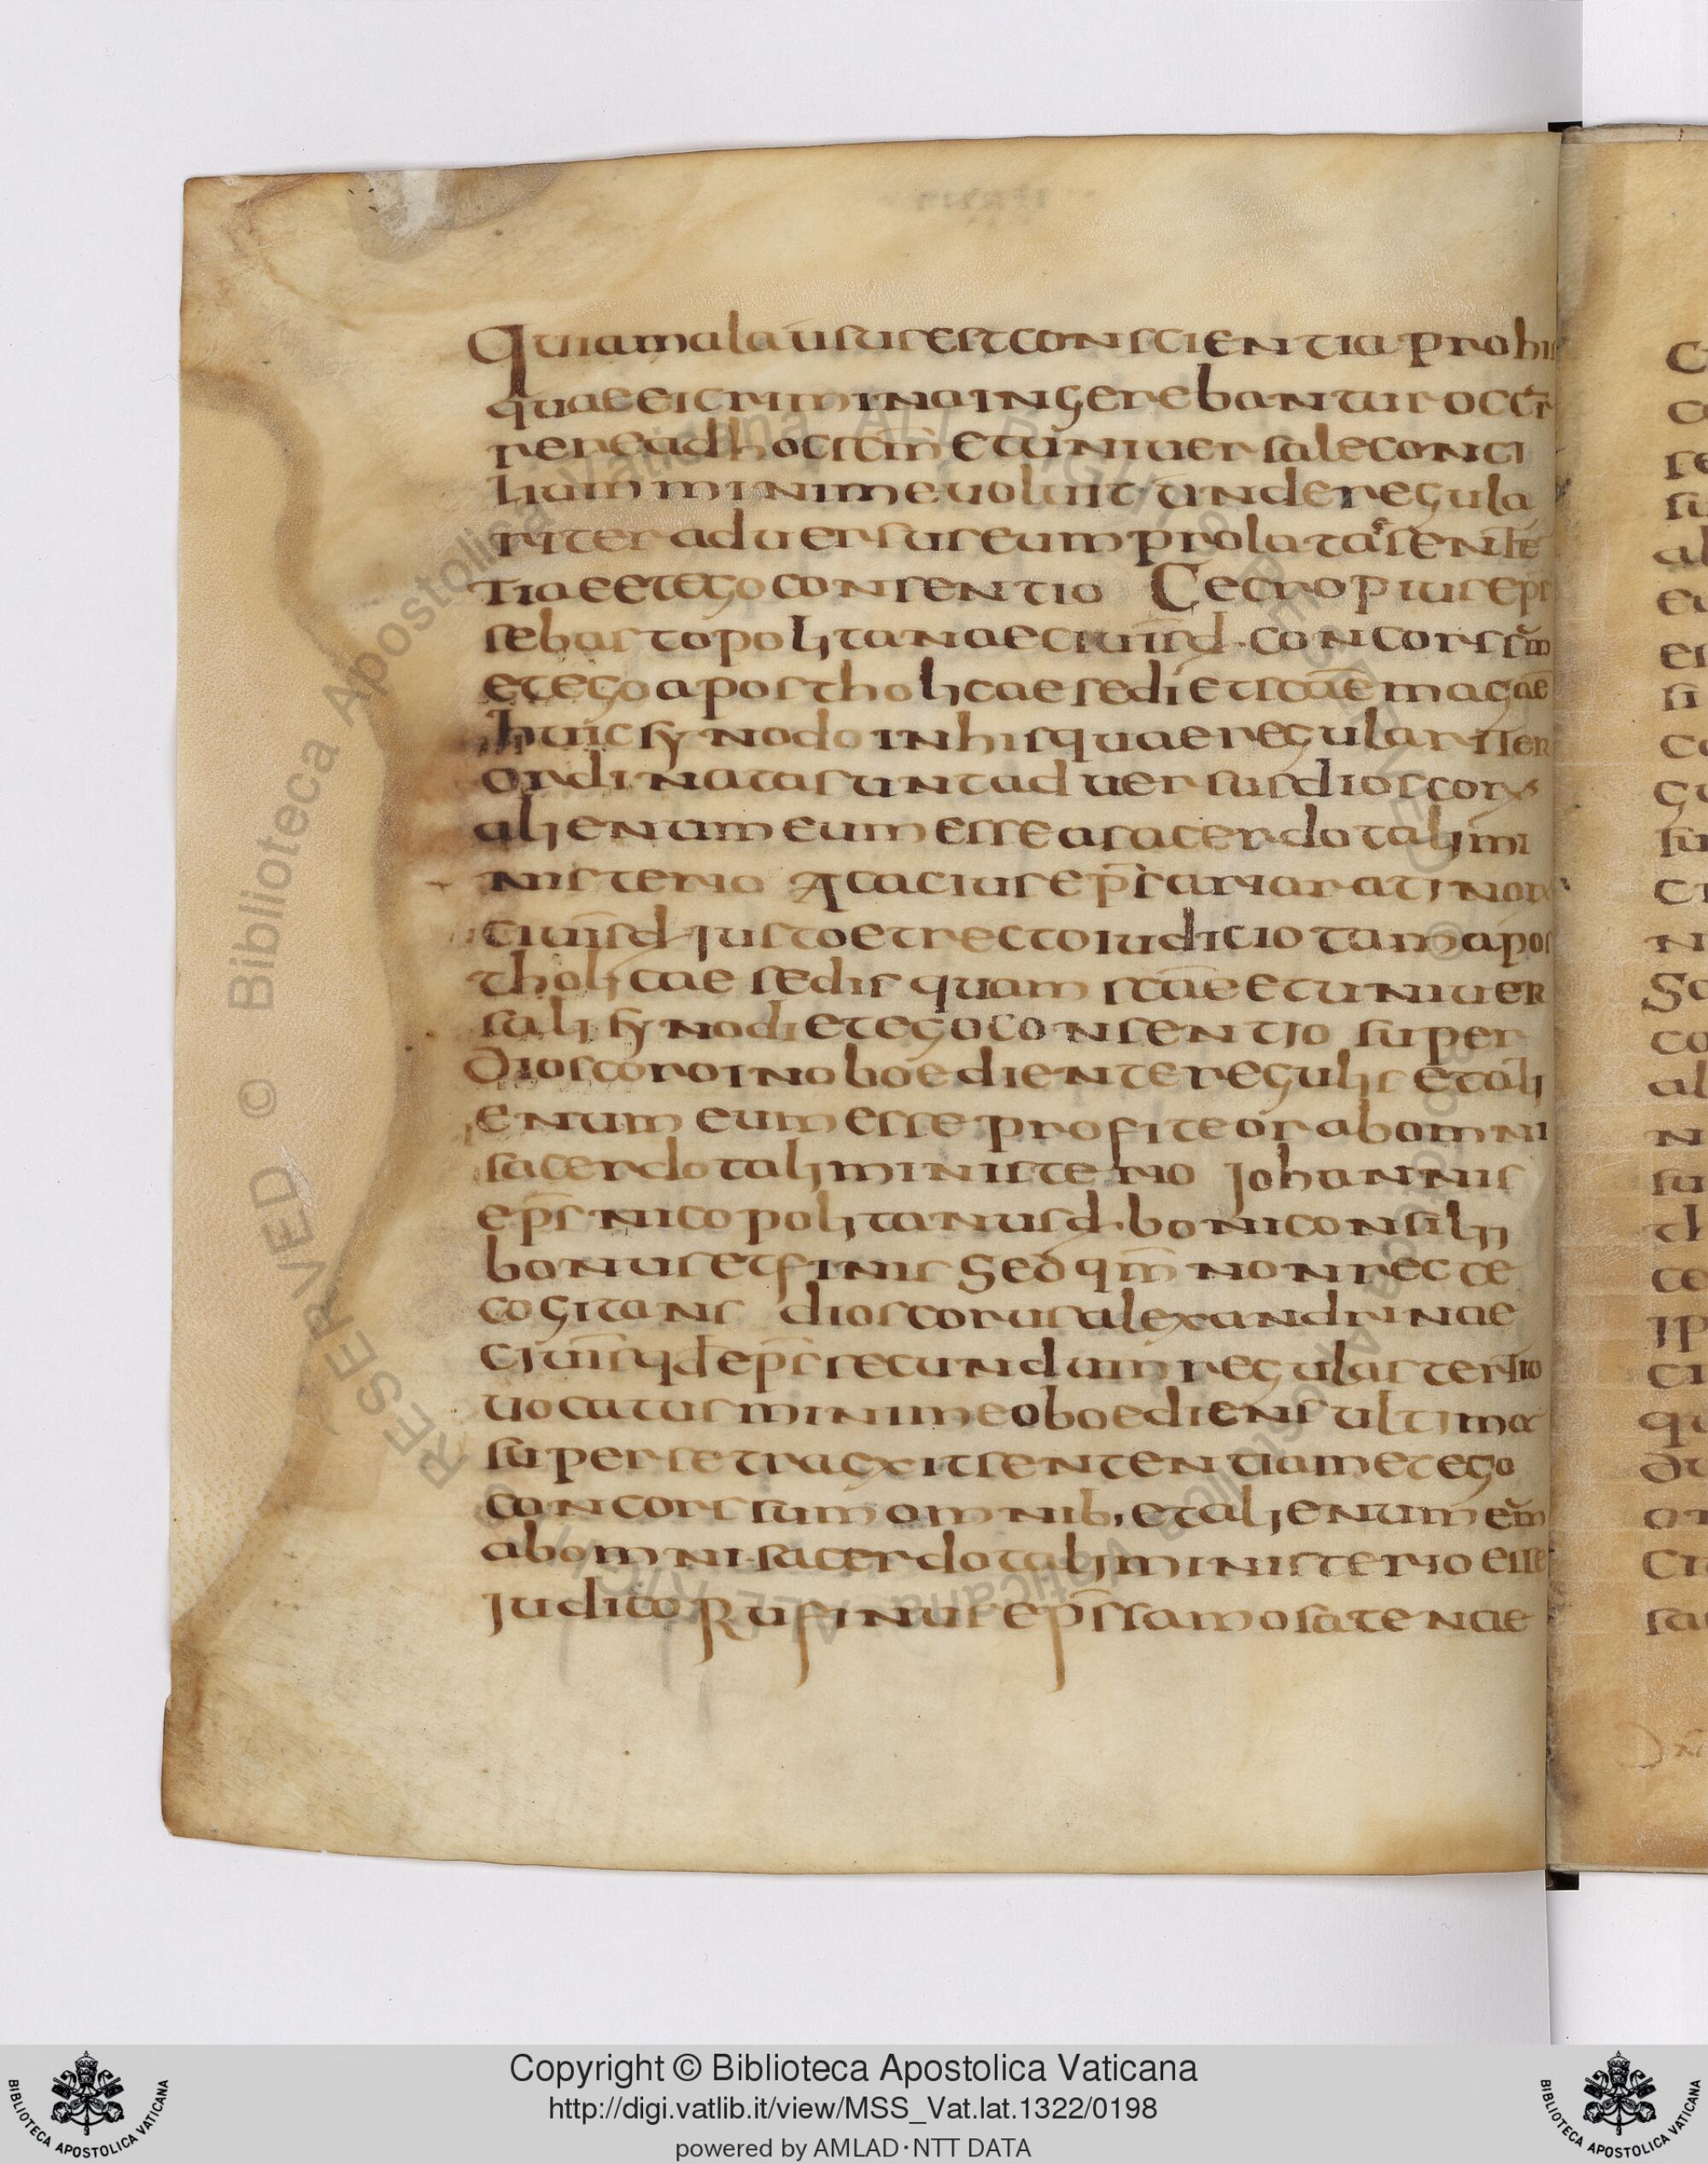 Quia mala ūsus est conscientia pro his
quae ei crimina ingerebantur occur
rere ad hoc sc̄m et universale conci
lium minime voluit unde regula
riter adversus eum prolatae senten
tiae et ego consentio Cecropius ep̄s
sebastopolitanae civit̄ d. concors sum
et ego apostholicae sedi et sc̄ae magnae
huic synodo in his quae regulariter
ordinata sunt adversus dioscorum
alienum eum esse a sacerdotali mi
nisterio Acacius ep̄s ariarati non
civit̄ d. justo et recto iudicio tam apos
tholicae sedis quam sc̄ae et univer
sali synodi et ego consentio super
dioscoro inoboediente regulis et ali
enum eum esse profiteor ab omni
sacerdotali ministerio Johannis
ep̄s nicopolitanus d. boni consilii
bonus et finis Sed qm̄ non recte
cogitans dioscorus alexandrinae
civit̄ qd ep̄s secundum regulas tertio
vocatus minime oboediens ultima
super se tragxit sententiam et ego
concors sum omnib; et alienum eum
ab omni sacerdotali ministerio esse
Judico Rufinus ep̄s samosatenae
Copyright © Biblioteca Apostolica Vaticana
http://digi.vatlib.it/view/MSS_Vat.lat.1322/0198
powered by AMLAD·NTT DATA
BIBLIOTECA APOSTOLICA VATICANA
BIBLIOTECA APOSTOLICA VATICANA